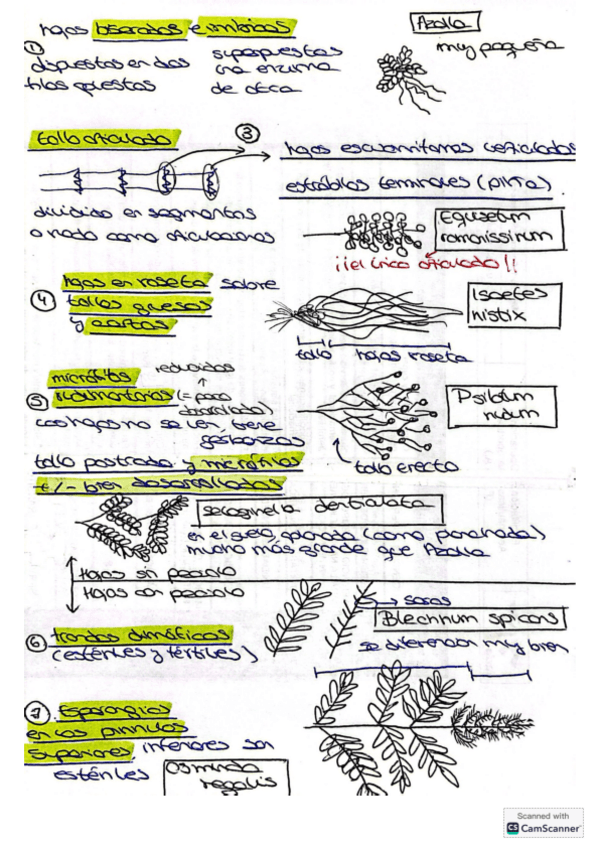 hojas biseriadas e imbricas
Azolla
①
dispuestas en dos
filas opuestas
superpuestas
una encima
de otra
muy pequeña
tallo articulado
③
hojas escuamiformes verticiladas
estróbilos terminales (piña)
dividido en segmentos
o nodos como articulaciones
Equisetum
ramosissimum
¡¡el único articulado!!
④
hojas en roseta sobre
tallos gruesos
y cortos
Isoetes
histrix
tallo
hojas roseta
microfilos
reducidos
⑤
rudimentarios (= poco
desarrollado)
las hojas no se ven, tiene
garbanzos
Psilotum
nudum
tallo erecto
tallo postrado y microfilos
+/- bien desarrollados
selaginella denticulata
en el suelo, aplanada (como planchada)
mucho más grande que Azolla
Hojas sin peciolo
Hojas con peciolo
soros
Blechnum spicans
⑥ frondas dimórficas
(estériles y fértiles)
se diferencian muy bien
⑦ Esporangios
en las pínnulas
superiores, inferiores son
estériles
Osmunda
regalis
Scanned with
CS CamScanner